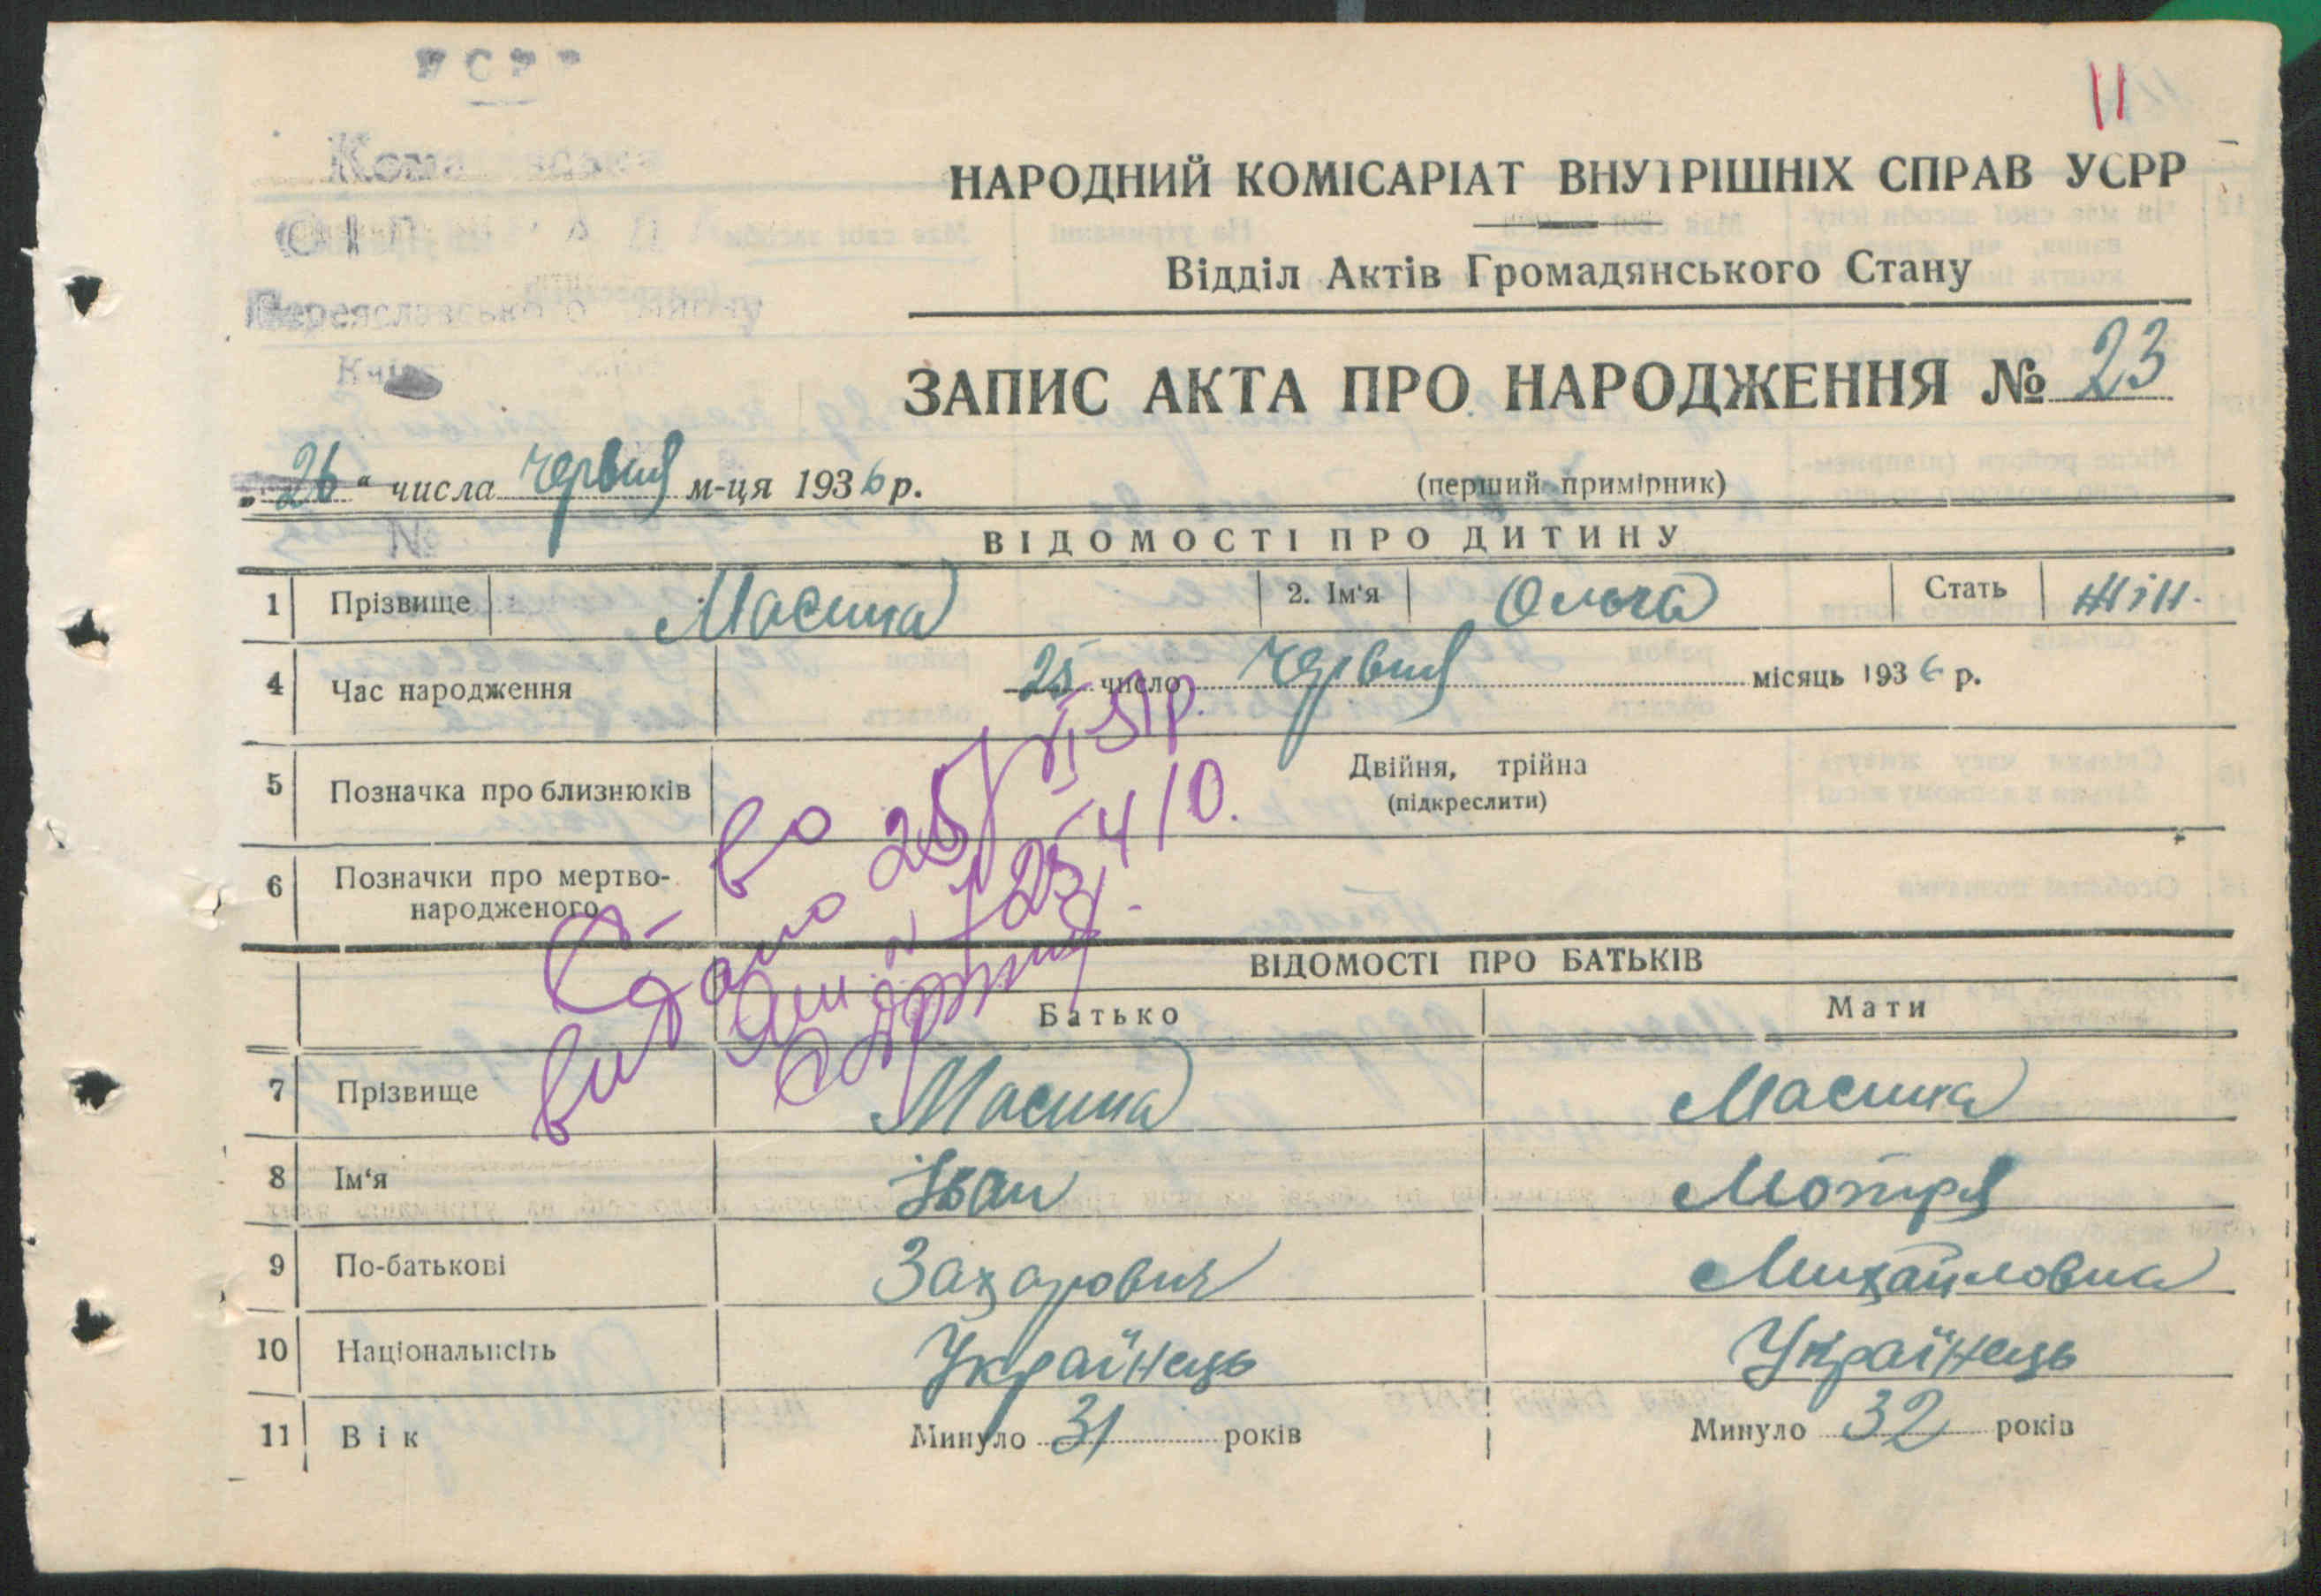 УСРР
11
НАРОДНИЙ КОМІСАРІАТ ВНУТРІШНІХ СПРАВ УСРР
Відділ Актів Громадянського Стану
Переяславського району
ЗАПИС АКТА ПРО НАРОДЖЕННЯ № 23
„26“ числа червня м-ця 1936 р.
(перший примірник)
№
ВІДОМОСТІ ПРО ДИТИНУ
1 Прізвище Масина 2. Ім'я Ольга Стать жін.
4 Час народження 25 число червня місяць 1936 р.
5 Позначка про близнюків Двійня, трійна
(підкреслити)
6 Позначки про мертво-
народженого
С-во
видано 25/VI 51р.
ВІДОМОСТІ ПРО БАТЬКІВ
Батько Мати
7 Прізвище Масина Масина
8 Ім'я Іван Мотря
9 По-батькові Захарович Михайловна
10 Національнсіть Українець Українець
11 Вік Минуло 31 років Минуло 32 років